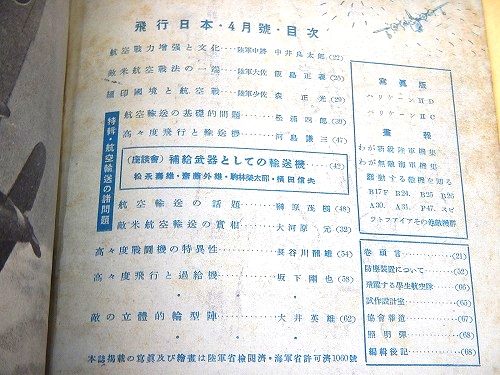 飛行日本・4月號・目次
航空戰力增強と文化……陸軍中將 中井良太郎(22)
敵米航空戰法の一端……陸軍大佐 飯島正義(25)
緬印國境と航空戰……陸軍少佐 森正光(29)
特輯・航空輸送の諸問題
航空輸送の基礎的問題……松浦四郎(39)
高々度飛行と輸送機……河島謙三(47)
(座談會) 補給武器としての輸送機……(42)
松永壽雄・齋藤外雄・駒林榮太郎・横田信夫
航空輸送の話題……榊原茂樹(48)
敵米航空輸送の實相……大河原元(32)
高々度戰鬪機の特異性……長谷川(54)
高々度飛行と過給機……坂下(58)
敵の立體的輪型陣……大井英雄(62)
寫眞版
ハリケーンⅡD
ハリケーンⅡC
畫報
わが新鋭陸軍機集
わが無敵海軍機集
蠢動する敵機を知る
B17F B24. B25 B26
A30. A31. P47. スピ
ツトフアイアその他敵機群
卷頭言……(21)
防塵裝置について……(52)
飛躍する學生航空隊……(65)
試作設計室……(65)
協會報道……(67)
照明彈……(68)
編輯後記……(68)
本誌掲載の寫眞及び繪畫は陸軍省檢閲濟・海軍省許可濟1060號